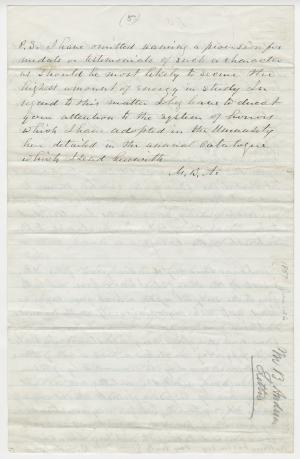 (5)
P.S. I have omitted naming a provision for
medals or testimonials of such a character
as should be most likely to secure the
highest amount of energy in study. In
regard to this matter I beg leave to direct
your attention to the system of honors
which I have adopted in the University
here detailed in the annual Catalogue
which I send herewith
M. B. A.
M B Anderson
Letter